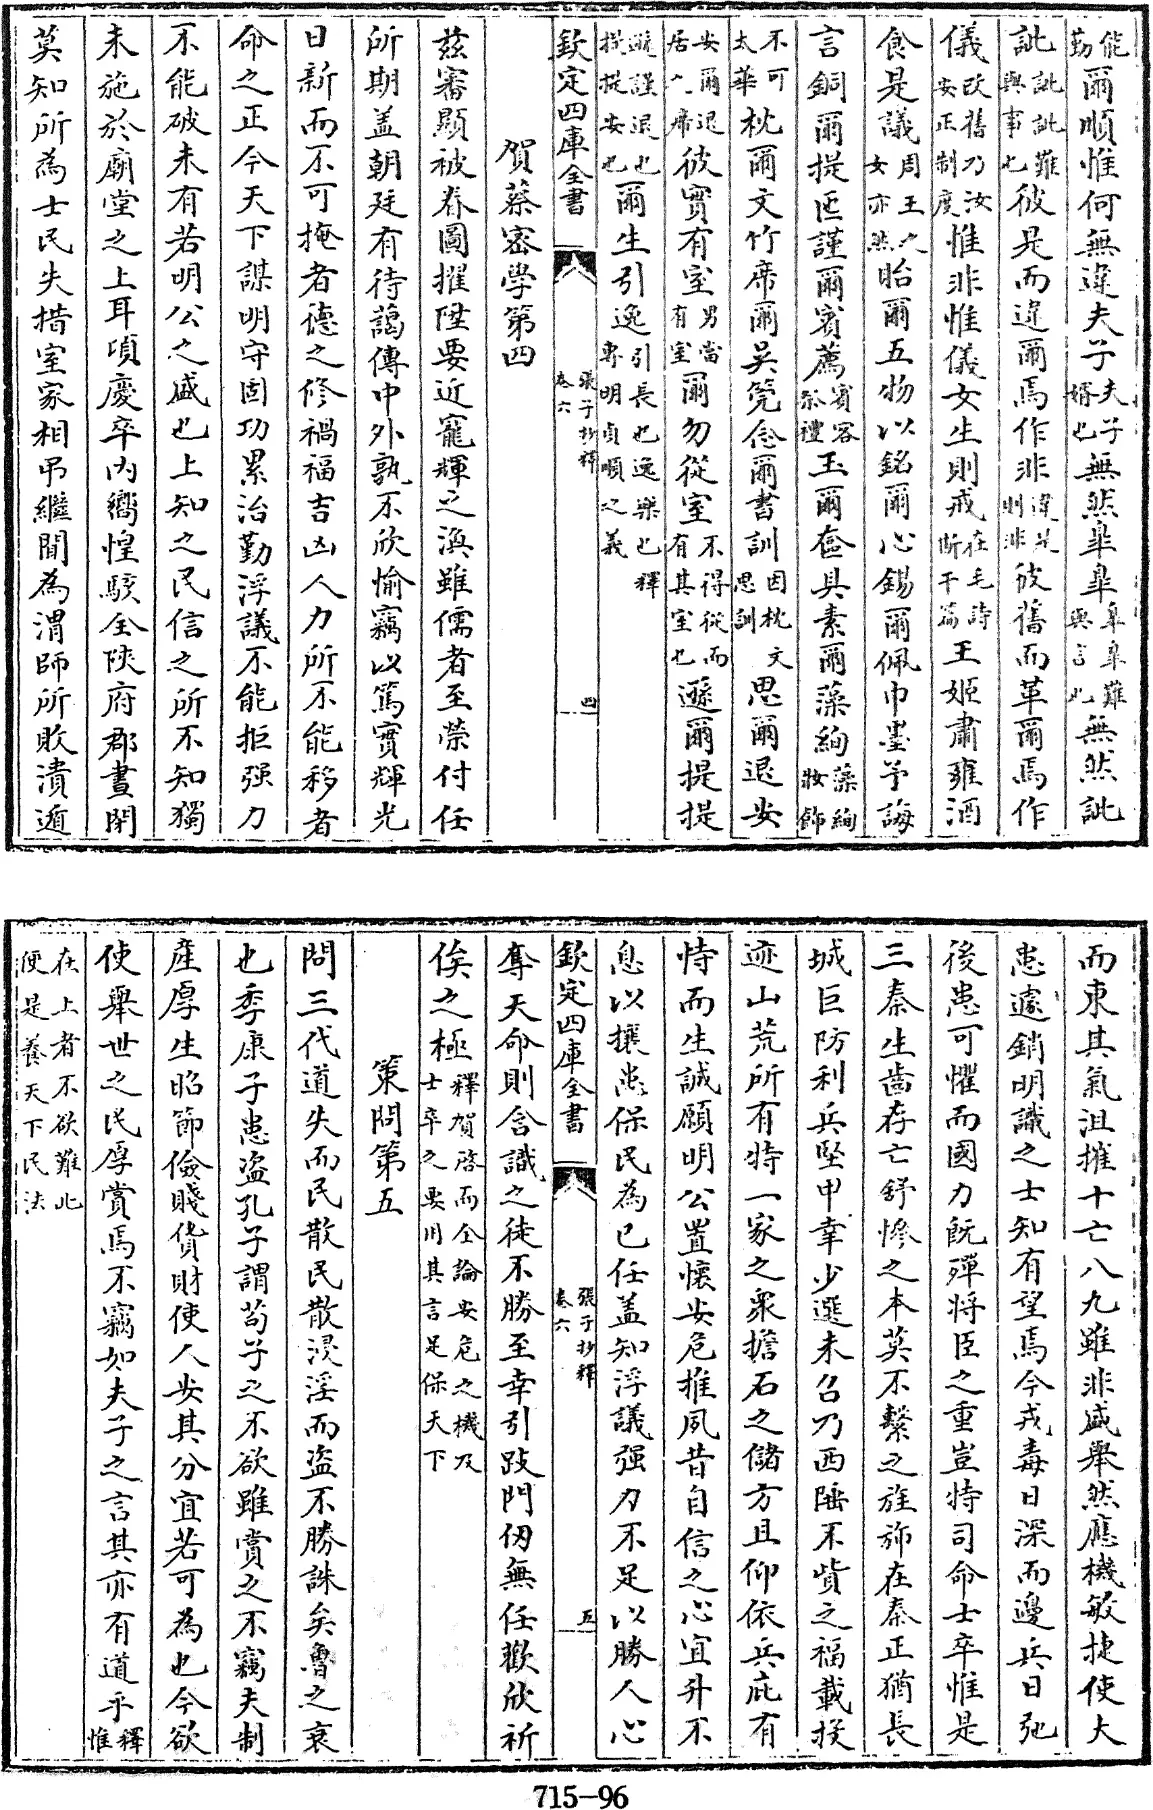 能勤爾順惟何無違夫子夫子婿也無然臯臯臯臯難與言也無然訿
訿訿訿難與事也彼是而違爾焉作非違是則非彼舊而革爾焉作
儀改舊乃汝安正制度惟非惟儀女生則戒在毛詩斯干篇王姬肅雍酒
食是議周王之女亦然貽爾五物以銘爾心錫爾佩巾墨予誨
言銅爾提匜謹爾賓薦賓客祭禮玉爾奩具素爾藻絢藻絢妝飾
不可太華枕爾文竹席爾吳筦念爾書訓因枕文思訓思爾退安
安爾退居之席彼實有室男當有室爾勿從室不得從而有其室也遜爾提提
遜謹退也提提安也爾生引逸引長也逸樂也釋專明貞順之義
欽定四庫全書 張子抄釋 卷六 四
賀蔡密學第四
茲審顯被眷圖擢陞要近寵輝之渙雖儒者至榮付任
所期蓋朝廷有待藹傳中外孰不欣愉竊以篤實輝光
日新而不可掩者德之修禍福吉凶人力所不能移者
命之正今天下謀明守固功累治勤浮議不能拒强力
不能破未有若明公之盛也上知之民信之所不知獨
未施於廟堂之上耳頃慶卒內嚮惶駭全陜府郡晝閉
莫知所為士民失措室家相弔繼聞為渭師所敗潰遁
而東其氣沮摧十亡八九雖非盛舉然應機敏捷使大
患遽銷明識之士知有望焉今戎毒日深而邊兵日弛
後患可懼而國力旣殫將臣之重豈特司命士卒惟是
三秦生齒存亡舒慘之本莫不繫之旌斾在秦正猶長
城巨防利兵堅甲幸少選未召乃西陲不貲之福載投
迹山荒所有特一家之衆擔石之儲方且仰依兵庇有
恃而生誠願明公置懷安危推夙昔自信之心宜升不
息以攘患保民為已任蓋知浮議强力不足以勝人心
欽定四庫全書 張子抄釋 卷六 五
奪天命則含識之徒不勝至幸引跂門仞無任歡欣祈
俟之極釋賀啓而全論安危之機及士卒之要用其言足保天下
策問第五
問三代道失而民散民散浸淫而盜不勝誅矣魯之衰
也季康子患盜孔子謂苟子之不欲雖賞之不竊夫制
產厚生昭節儉賤貨財使人安其分宜若可為也今欲
使舉世之民厚賞焉不竊如夫子之言其亦有道乎釋惟
在上者不欲難此便是養天下民法
715-96